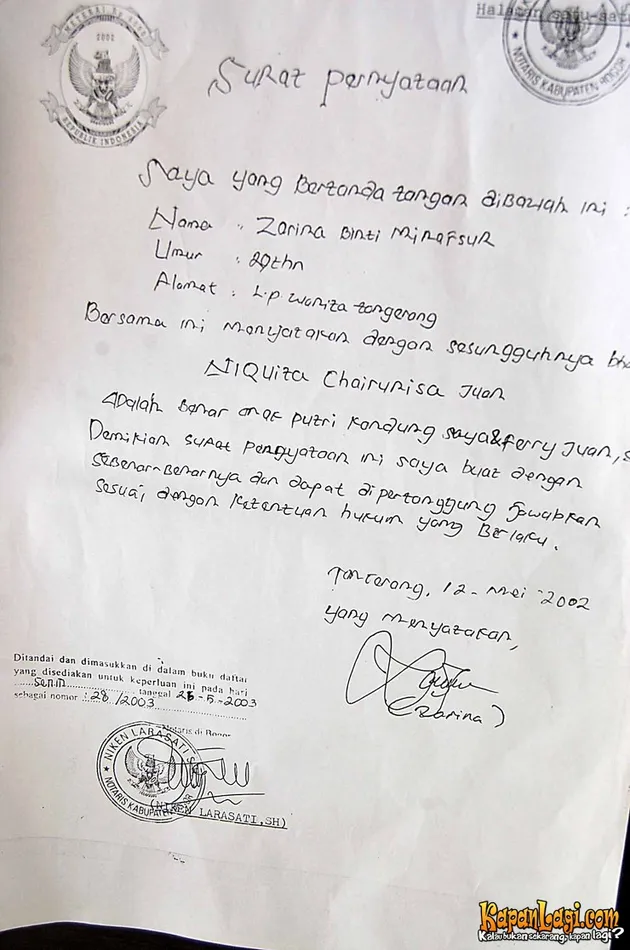 METERAI
2002
REPUBLIK INDONESIA
Halaman satu-satu
NOTARIS KABUPATEN BOGOR
Surat pernyataan
Saya yang Bertanda tangan diBawah ini :
Nama : Zarina Binti Mirafsur
Umur : 29thn
Alamat : L.p. wanita tangerang
Bersama ini menyatakan dengan sesungguhnya bhw
NIQuita Chairunisa Juan
Adalah Benar anak putri kandung saya&ferry Juan, s
Demikian surat pengyataan ini saya buat dengan
sebenar-Benarnya dan dapat dipertanggung jawabkan
sesuai dengan Ketentuan hukum yang Berlaku.
Tangerang, 12 - Mei - 2002
yang menyatakan,
(Zarina)
Ditandai dan dimasukkan di dalam buku daftar
yang disediakan untuk keperluan ini pada hari
Senin tanggal 26-5-2003
sebagai nomor : 28 /2003
Notaris di Bogor
NIKEN LARASATI SH
NOTARIS KABUPATEN
(NIKEN LARASATI,SH)
KapanLagi.com
Kalau bukan sekarang, kapan lagi?